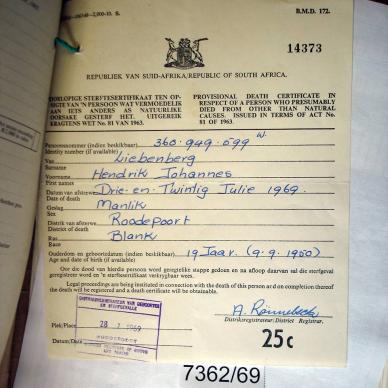 B.M.D. 172.
14373
REPUBLIEK VAN SUID-AFRIKA/REPUBLIC OF SOUTH AFRICA.
VOORLOPIGE STERFTESERTIFIKAAT TEN OP-
SIGTE VAN 'N PERSOON WAT VERMOEDELIK
AAN IETS ANDERS AS NATUURLIKE
OORSAKE GESTERF HET. UITGEREIK
KRAGTENS WET No. 81 VAN 1963.
PROVISIONAL DEATH CERTIFICATE IN
RESPECT OF A PERSON WHO PRESUMABLY
DIED FROM OTHER THAN NATURAL
CAUSES. ISSUED IN TERMS OF ACT No.
81 OF 1963.
Persoonsnommer (indien beskikbaar) 360-949-699 W.
Identity number (if available)
Van Liebenberg
Surname
Voorname Hendrik Johannes
First names
Datum van afsterwe Drie-en-Twintig Julie 1969.
Date of death
Geslag Manlik
Sex
Distrik van afsterwe Roodepoort
District of death
Ras Blank
Race
Ouderdom en geboortedatum (indien beskikbaar) 19 Jaar (9-9-1950)
Age and date of birth (if available)
Oor die dood van hierdie persoon word geregtelike stappe gedoen en na afloop daarvan sal die sterfgeval
geregistreer word en 'n sterftesertifikaat verkrygbaar wees.
Legal proceedings are being instituted in connection with the death of this person and on completion thereof
the death will be registered and a death certificate will be obtainable.
Plek/Place
28 7 1969
ROODEPOORT
Datum/Date
A. Rönnebeck
Distriksregistrateur/District Registrar.
25c
7362/69